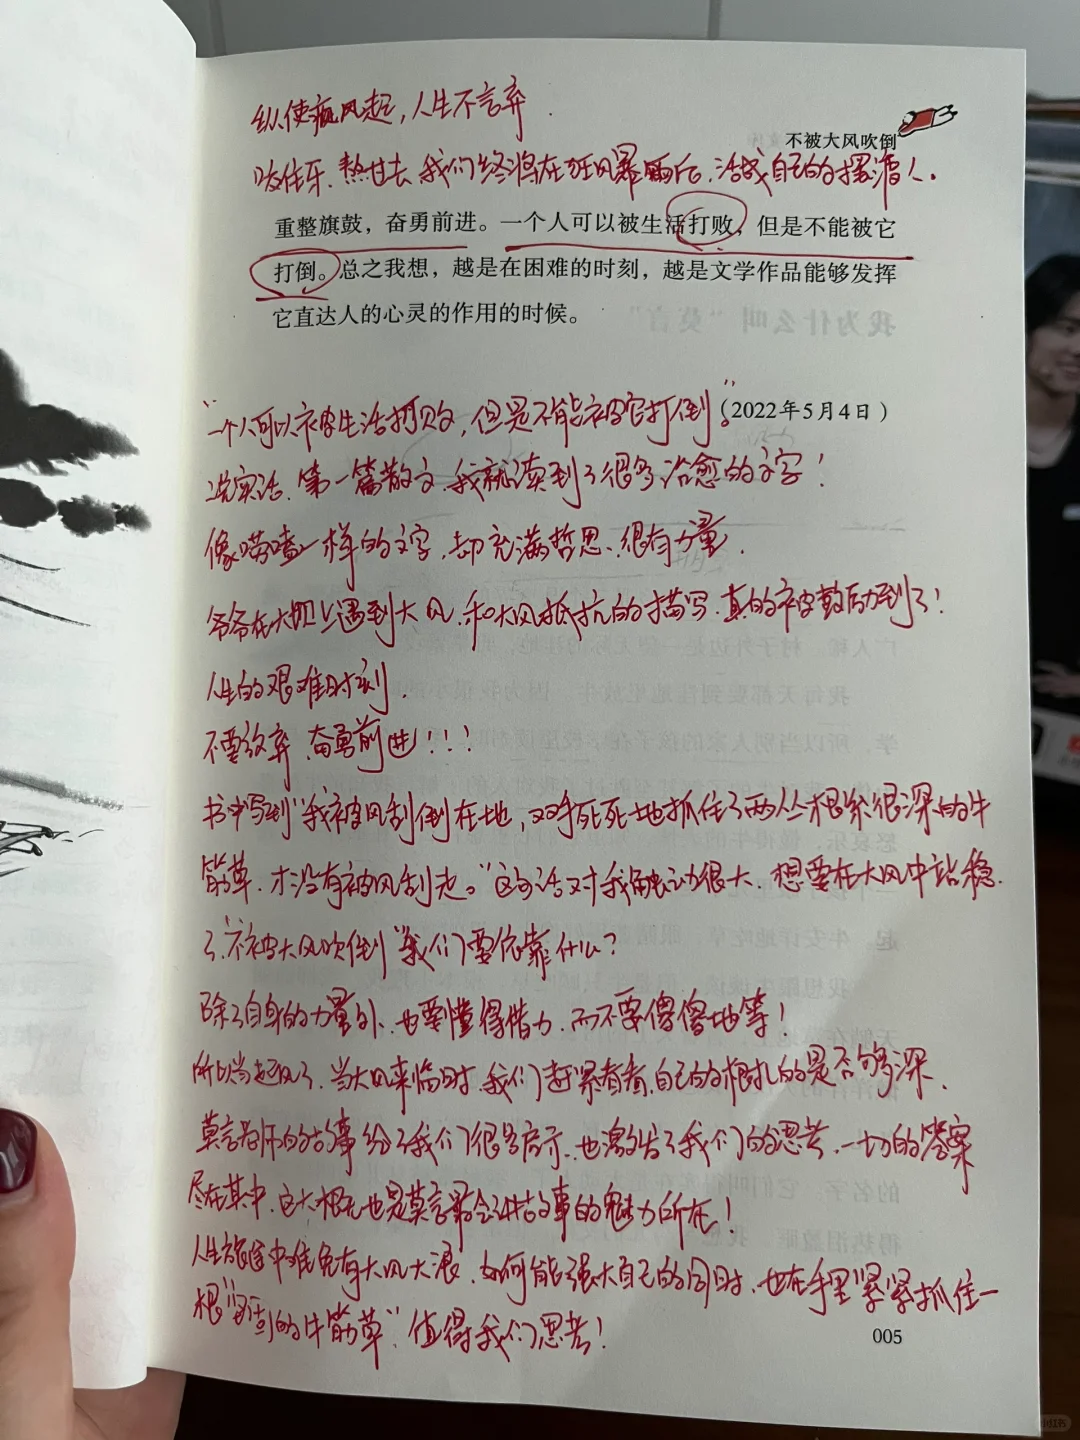 纵使疯风起，人生不言弃
不被大风吹倒
咬住牙、熬过去、我们终将在狂风暴雨后、活成自己的摆渡人.
重整旗鼓，奋勇前进。一个人可以被生活打败，但是不能被它
打倒。总之我想，越是在困难的时刻，越是文学作品能够发挥
它直达人的心灵的作用的时候。
“一个人可以被生活打败，但是不能被它打倒。”
（2022年5月4日）
说实话、第一篇散文、我就读到了很多治愈的文字！
像唠嗑一样的文字，却充满哲思、很有力量.
爷爷在大坝上遇到大风、和大风抵抗的描写、真的被鼓励到了！
人生的艰难时刻.
不要放弃、奋勇前进！！！
书中写到“我被风刮倒在地，双手死死地抓住了两丛根系很深的牛
筋草、才没有被风刮走。”这句话对我触动很大、想要在大风中站稳.
了、“不被大风吹倒”我们要依靠什么？
除了自身的力量外、也要懂得借力、而不要傻傻地等！
所以当起风了、当大风来临时、我们赶紧看看、自己的根扎的是否够深.
莫言老师的故事给了我们很多启示、也激发了我们的思考、一切的答案
尽在其中、这大概也是莫言最会讲故事的魅力所在！
人生旅途中难免有大风大浪、如何能强大自己的同时、也在手里紧紧抓住一
根“ 的牛筋草”值得我们思考！
005